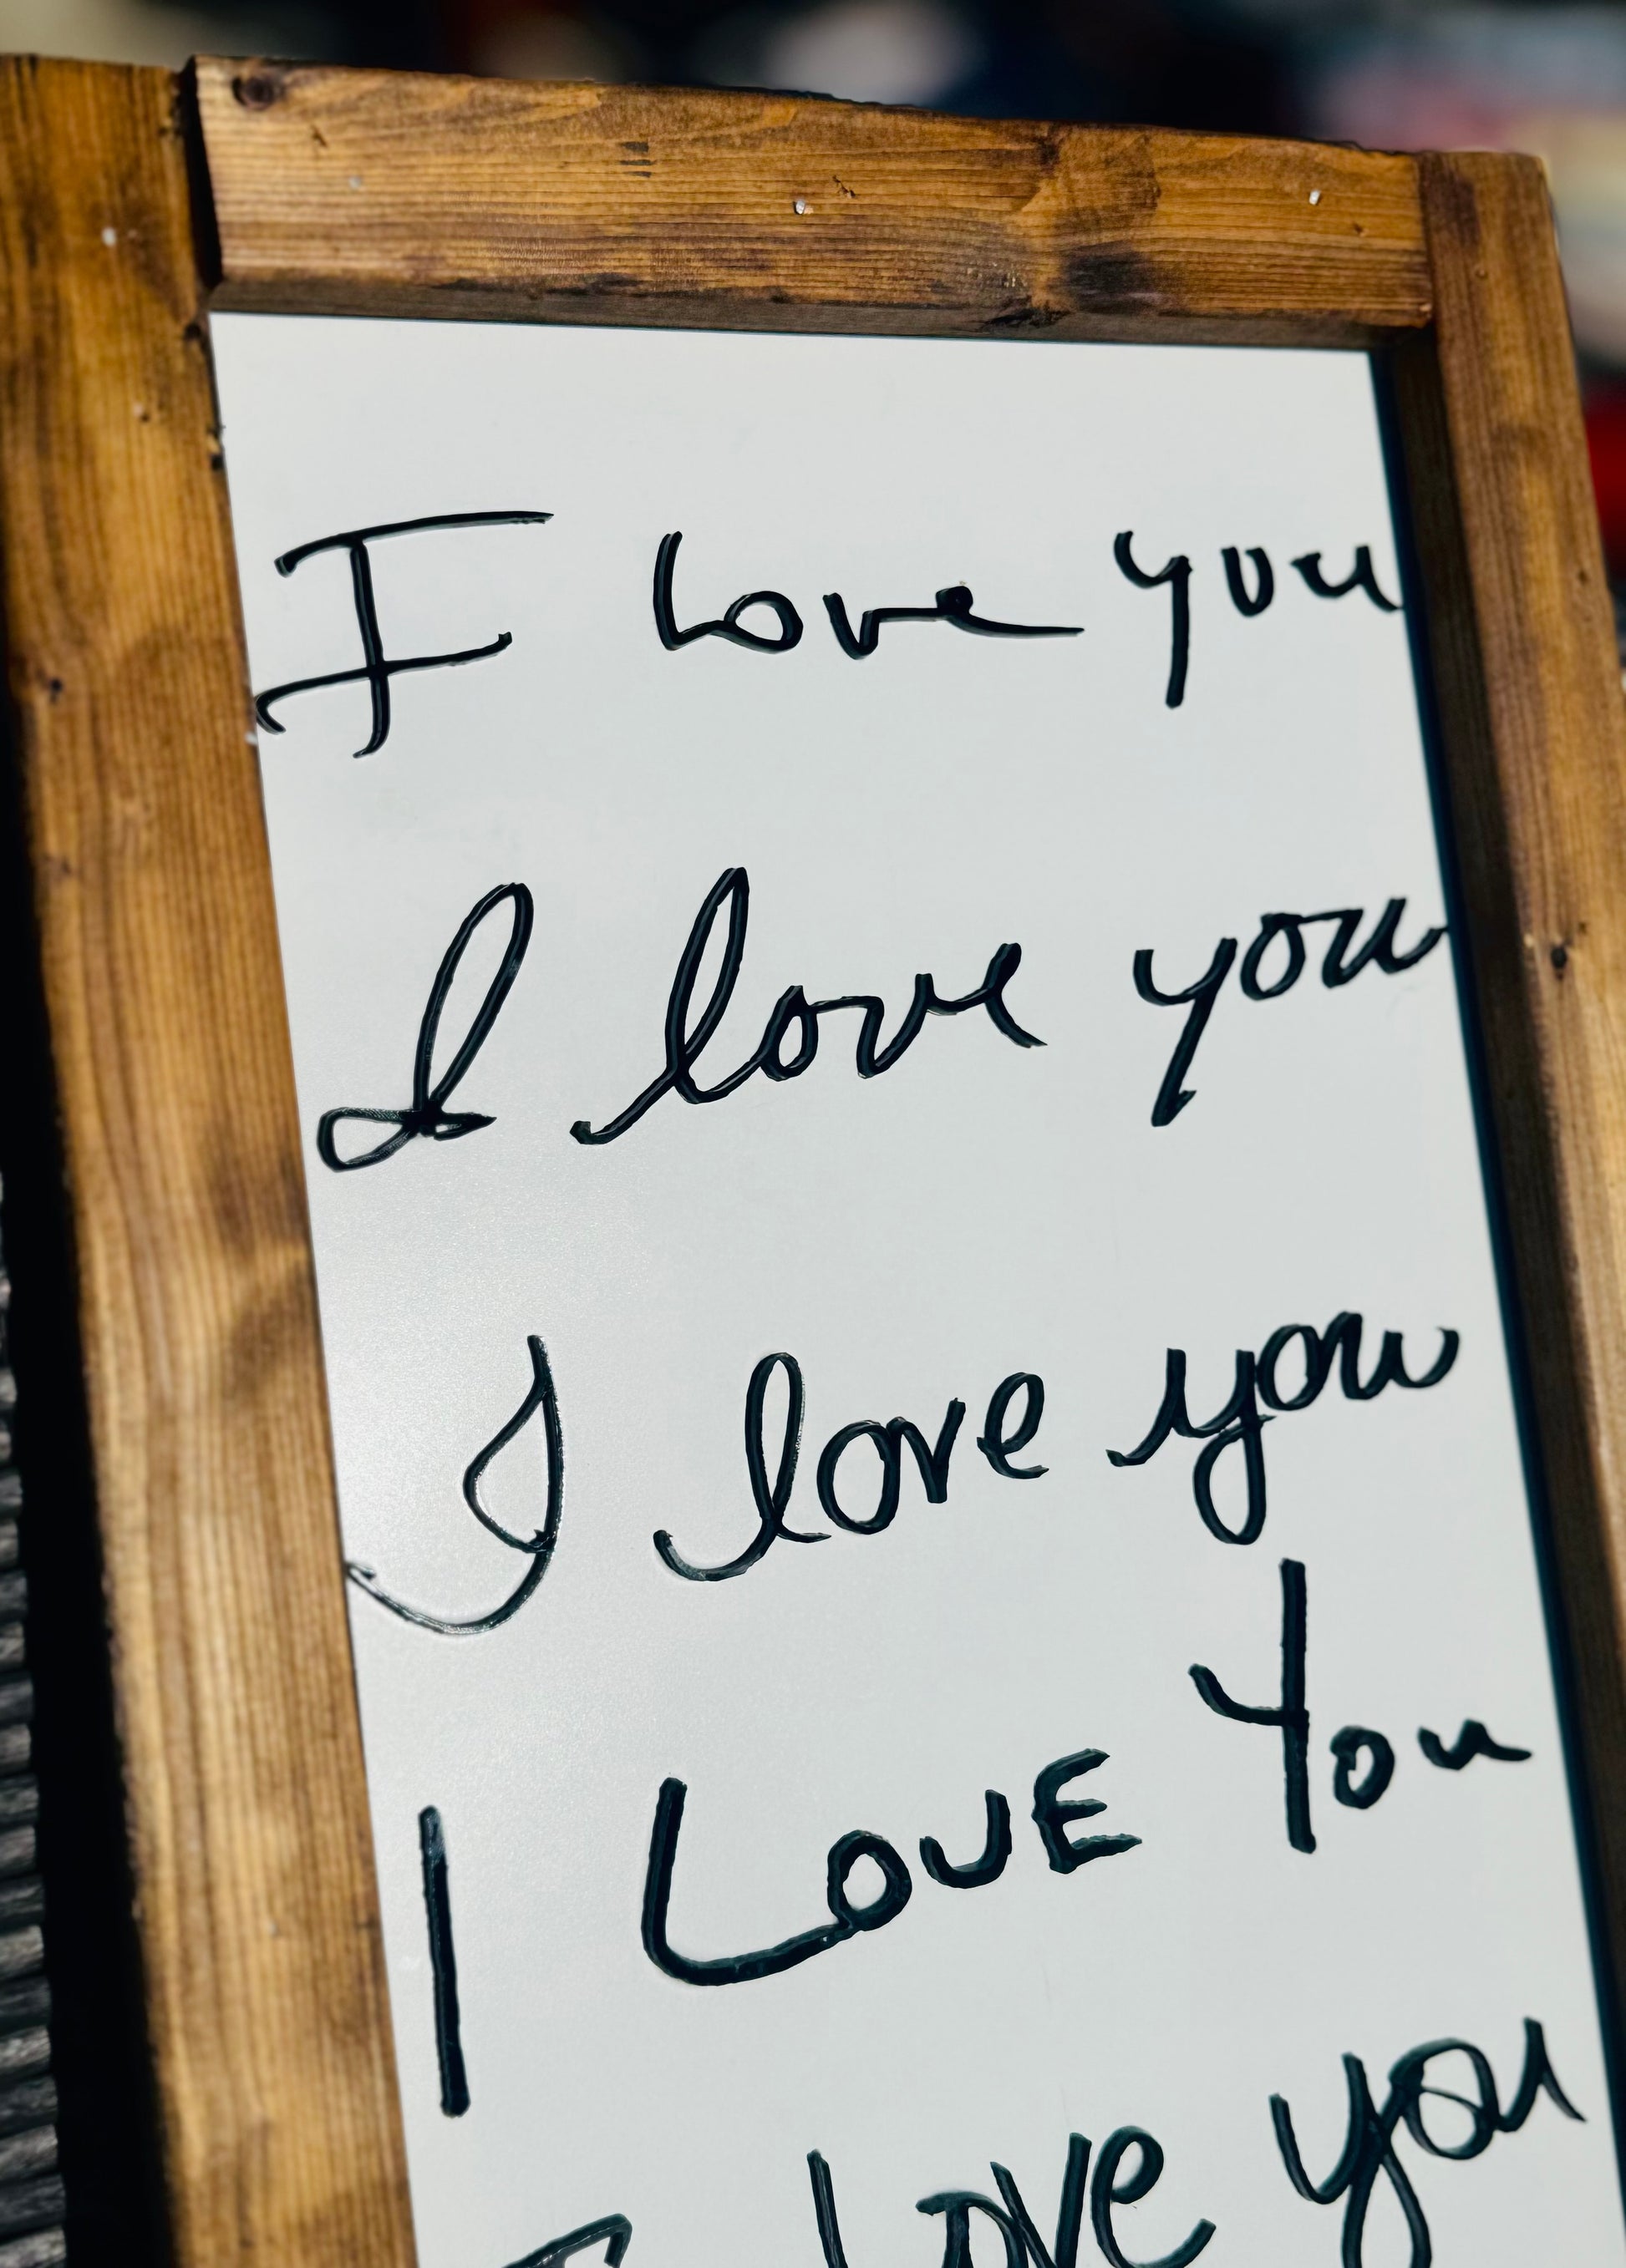 I love you
I love you
I love you
I LOVE You
I love you